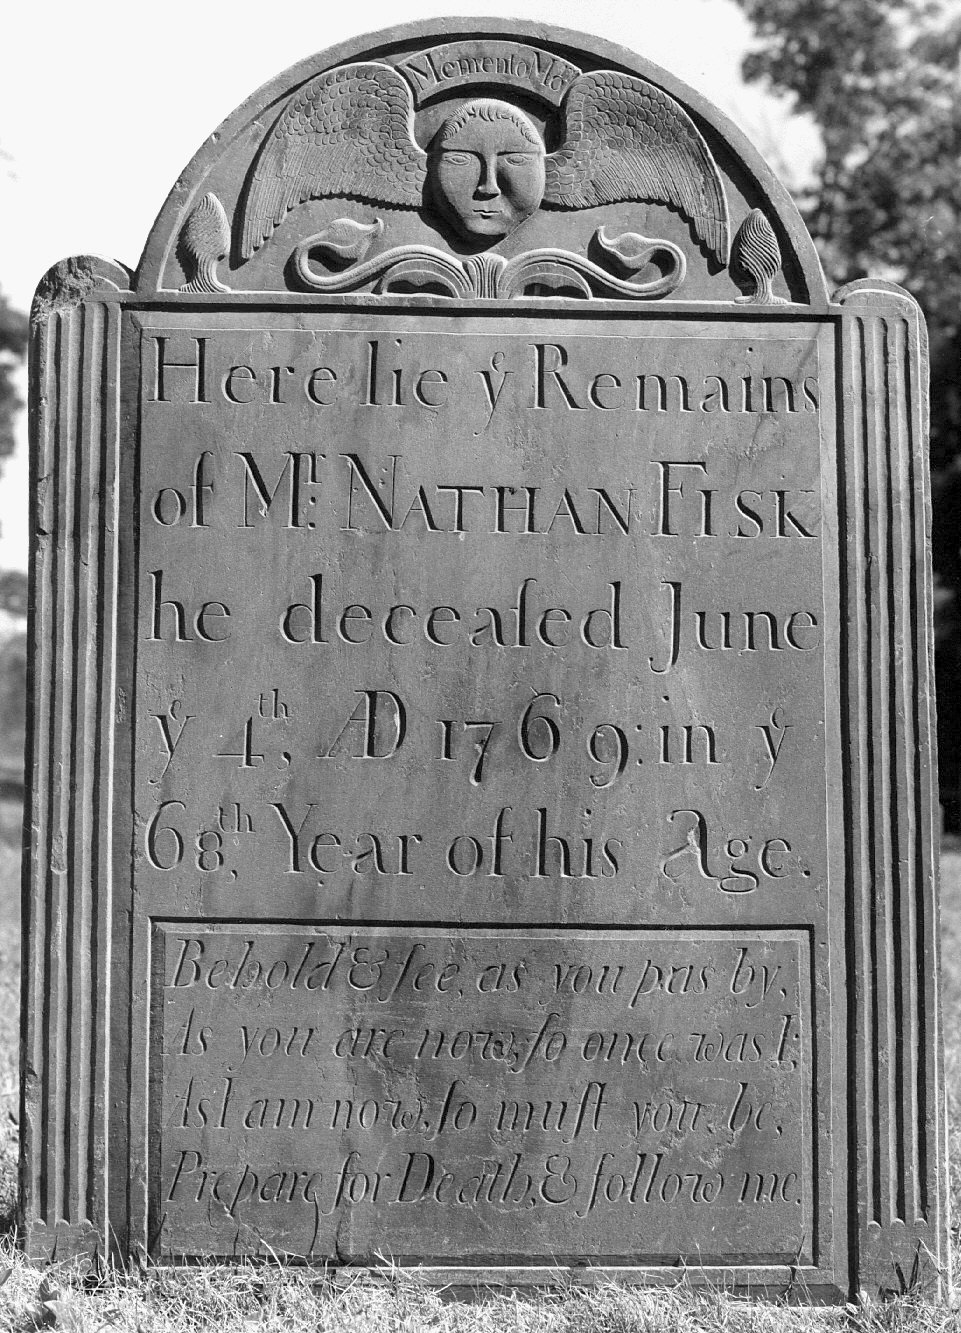 Memento Mori
Here lie yͤ Remains
of Mͬ: NATHAN FISK
he deceaſed June
yͤ 4th, AD 1769: in yͤ
68th, Year of his Age.
Behold & ſee, as you paſs by,
As you are now, ſo once was I;
As I am now, ſo muſt you be,
Prepare for Death, & follow me